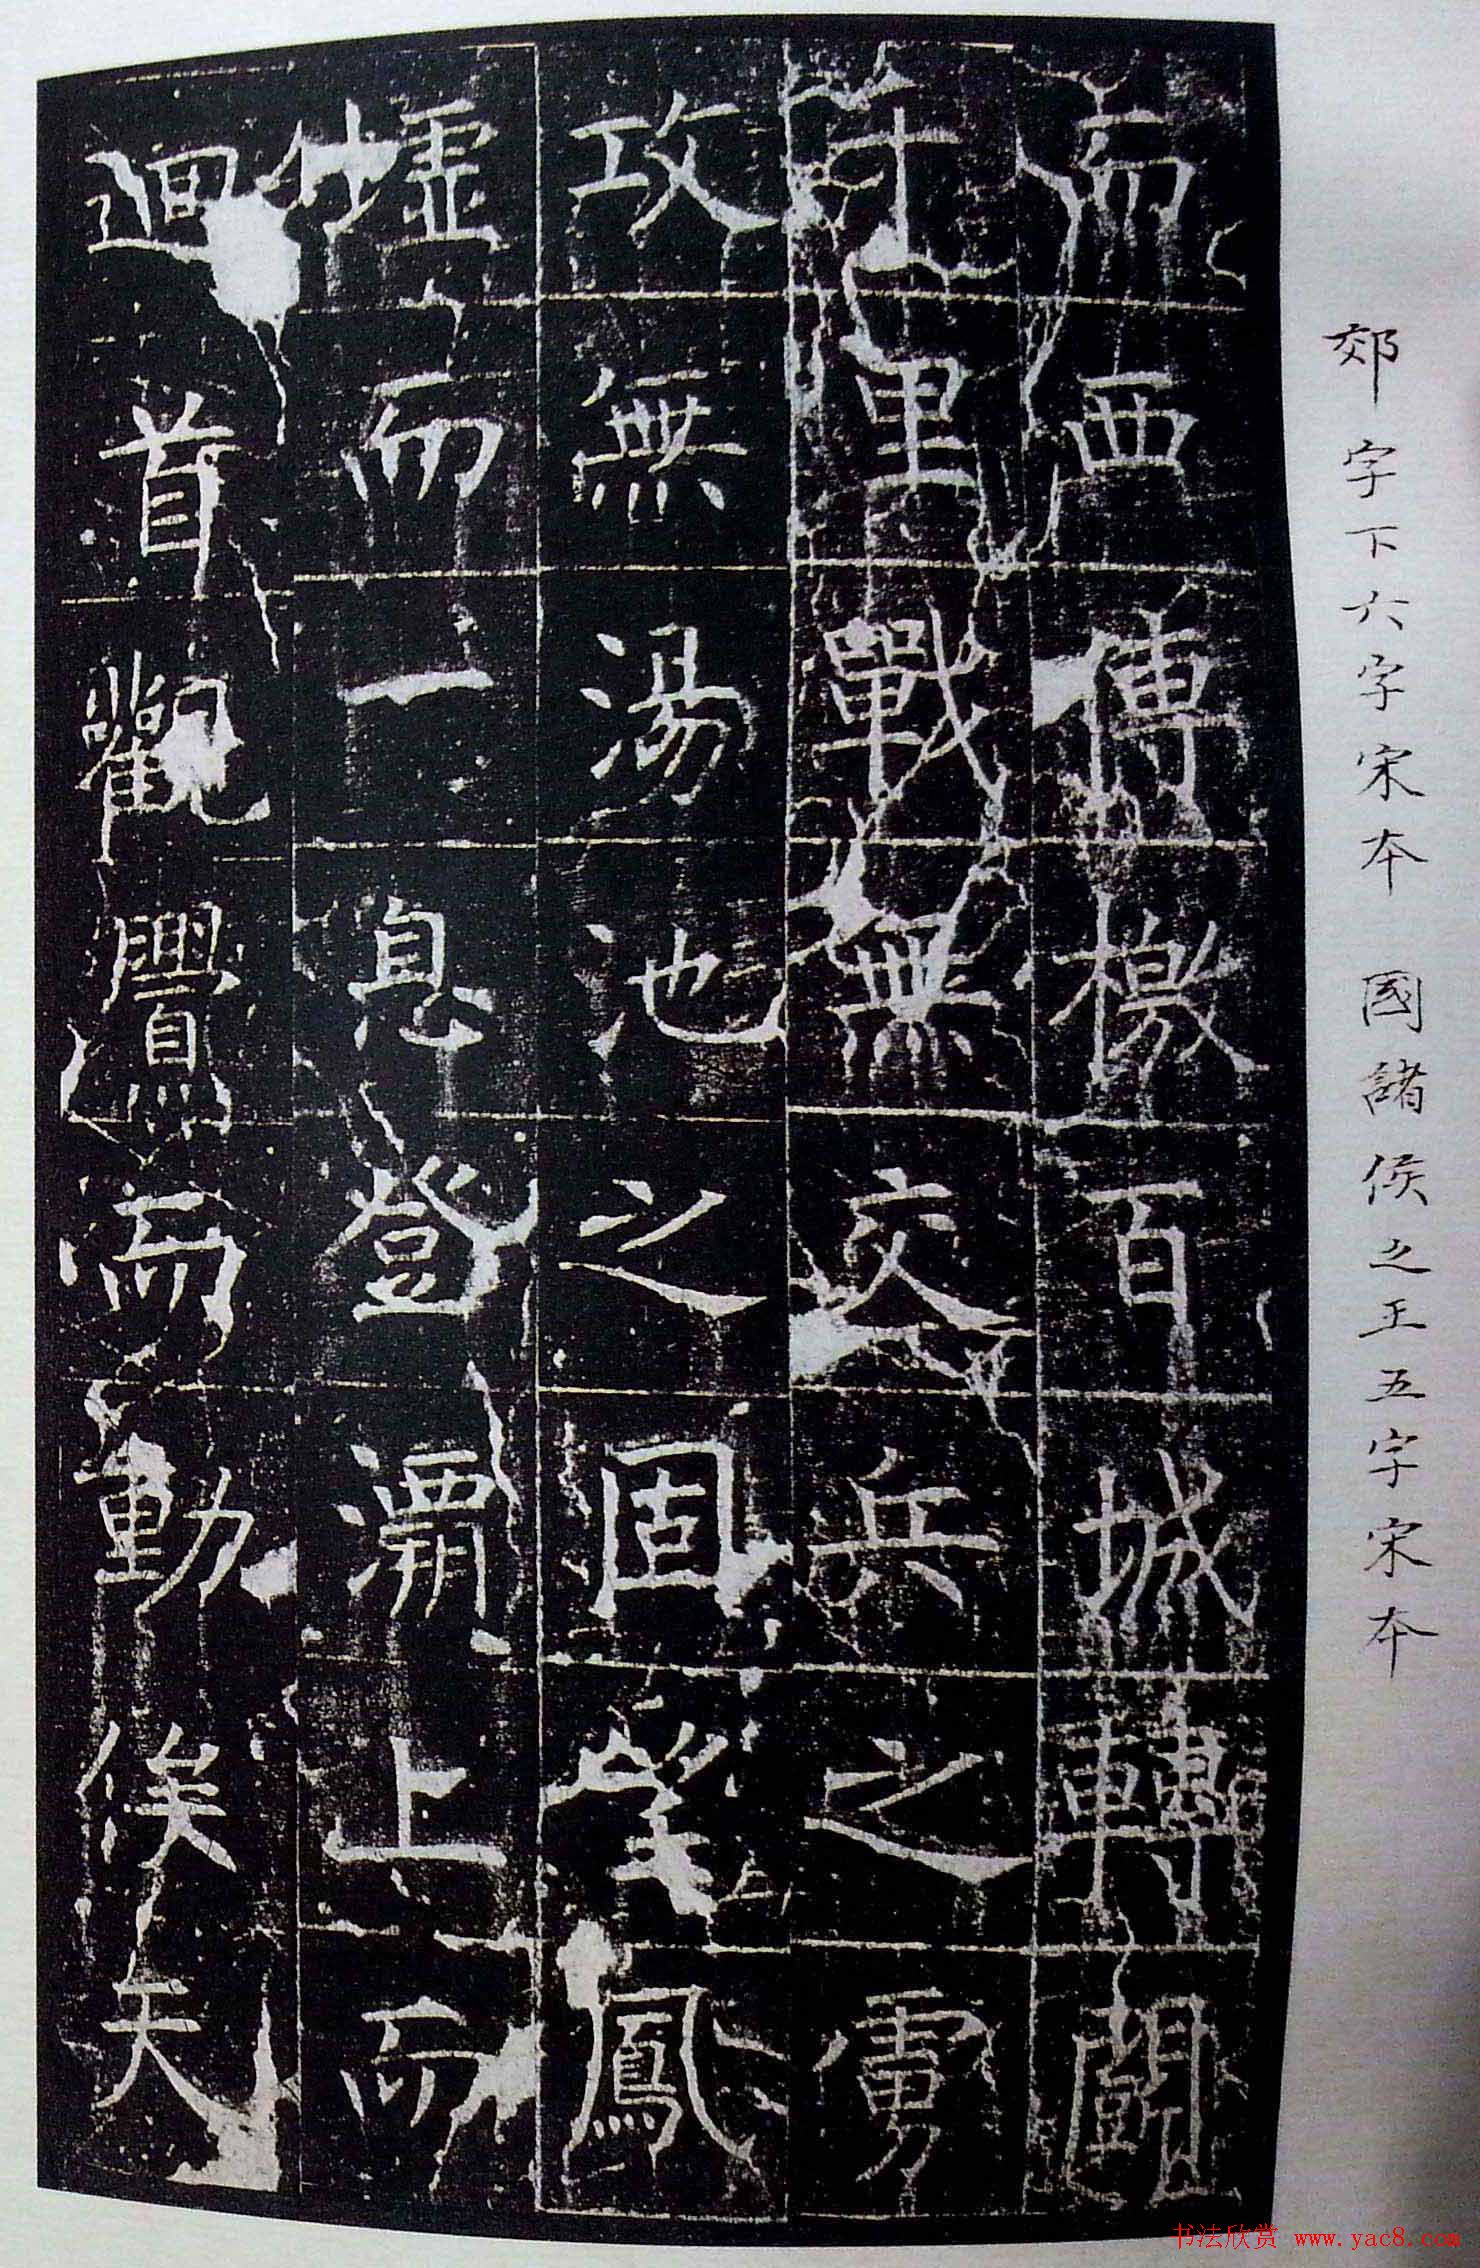 郊字下六字宋本 國諸侯之王五字宋本
而西傳檄百城轉鬪
千里戰無交兵之虜
攻無湯池之固望鳳
墟而一息登灞上而
迴首觀舋而動俟天
书法欣赏 www.yac8.com